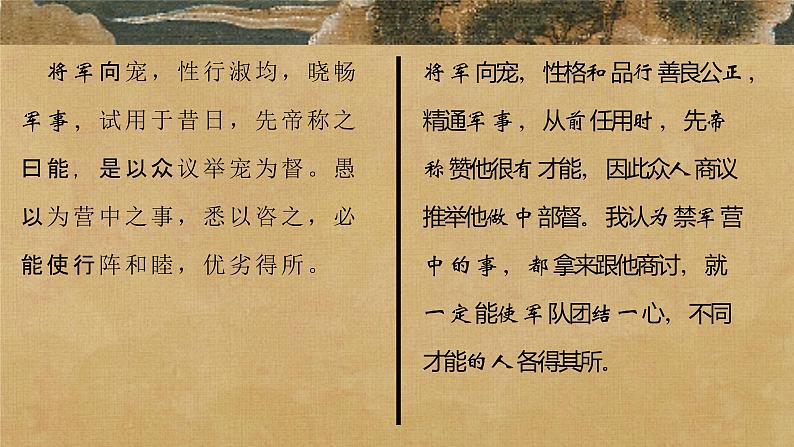 将军向宠，性行淑均，晓畅
军事，试用于昔日，先帝称之
曰能，是以众议举宠为督。愚
以为营中之事，悉以咨之，必
能使行阵和睦，优劣得所。
将军向宠，性格和品行善良公正，
精通军事，从前任用时，先帝
称赞他很有才能，因此众人商议
推举他做中部督。我认为禁军营
中的事，都拿来跟他商讨，就
一定能使军队团结一心，不同
才能的人各得其所。